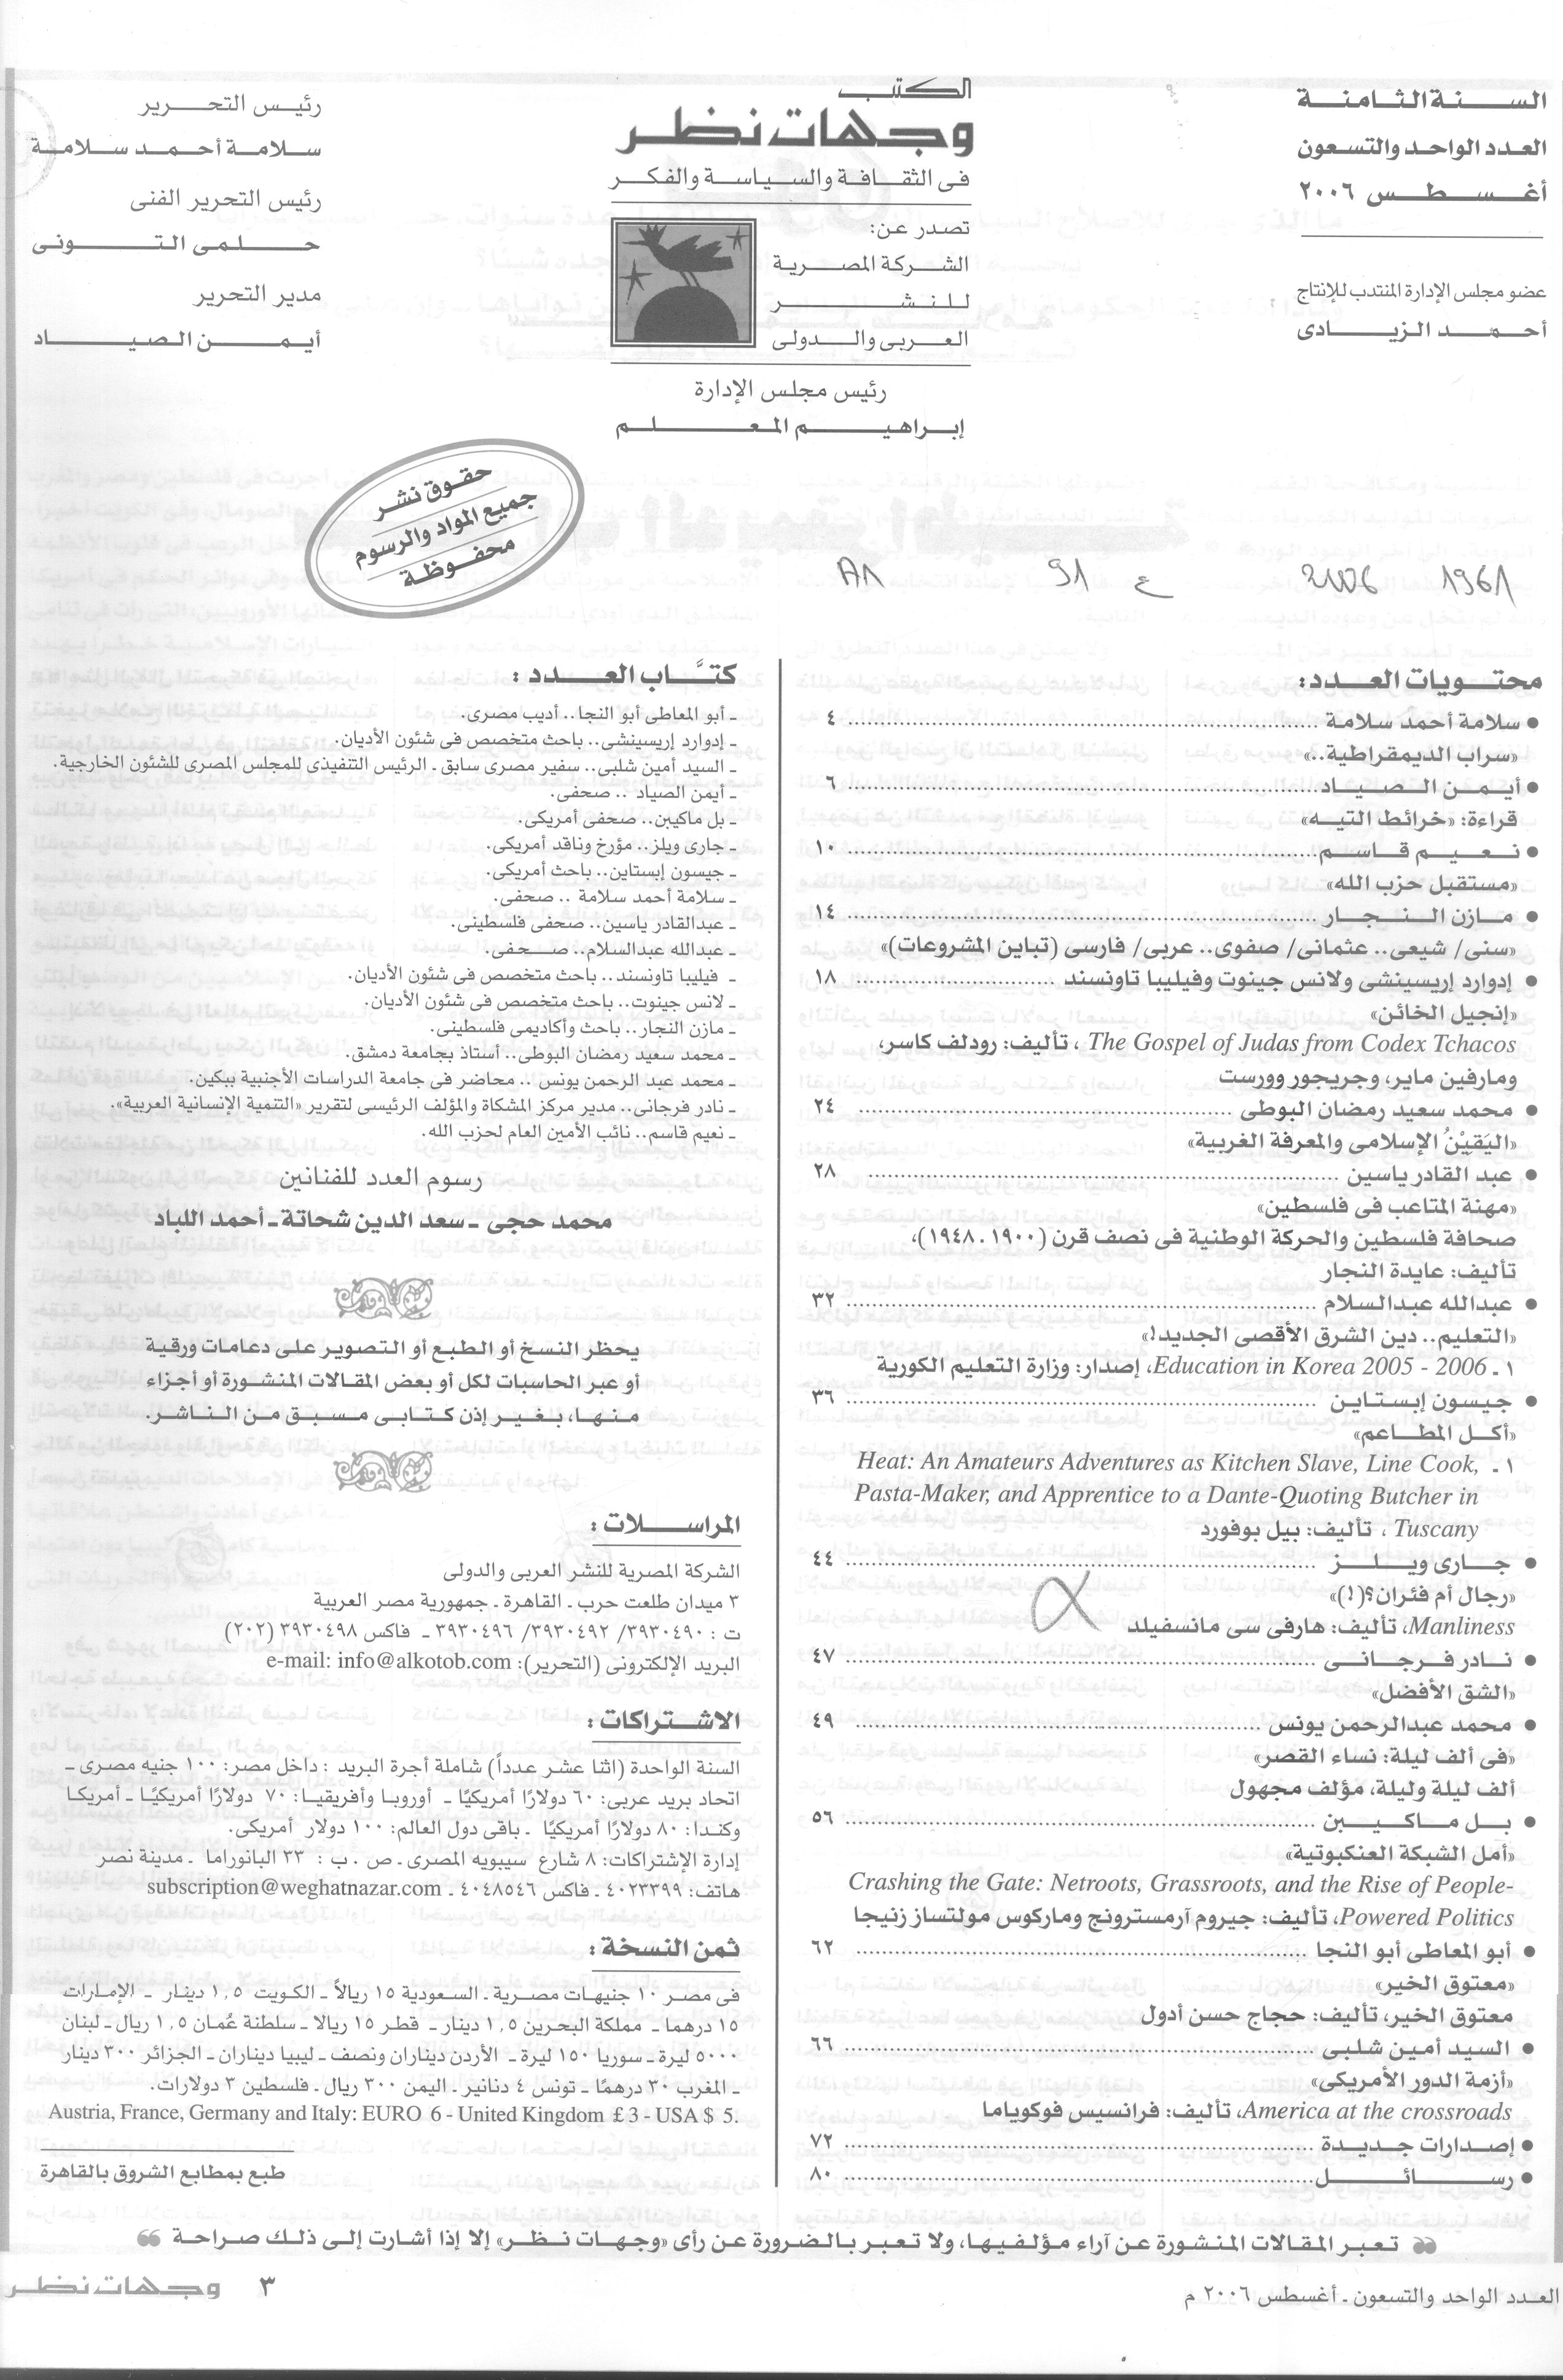 السنة الثامنة
العدد الواحد والتسعون
أغسطس ٢٠٠٦
عضو مجلس الإدارة المنتدب للإنتاج
أحمد الزيادى
الكتب
وجهات نظر
فى الثقافة والسياسة والفكر
تصدر عن:
الشركة المصرية
للنشر
العربى والدولى
رئيس مجلس الإدارة
إبراهيم المعلم
رئيس التحرير
سلامة أحمد سلامة
رئيس التحرير الفنى
حلمى التونى
مدير التحرير
أيمن الصياد
حقوق نشر
جميع المواد والرسوم
محفوظة
محتويات العدد:
• سلامة أحمد سلامة ........ ٤
«سراب الديمقراطية..»
• أيمن الصياد ........ ٦
قراءة: «خرائط التيه»
• نعيم قاسم ........ ١٠
«مستقبل حزب الله»
• مازن النجار ........ ١٤
«سنى/ شيعى.. عثمانى/ صفوى.. عربى/ فارسى (تباين المشروعات)»
• إدوارد إريسينشى ولانس جينوت وفيليبا تاونسند ........ ١٨
«إنجيل الخائن»
The Gospel of Judas from Codex Tchacos ، تأليف: رودلف كاسر،
ومارفين ماير، وجريجور وورست
• محمد سعيد رمضان البوطى ........ ٢٤
«اليَقيْنُ الإسلامى والمعرفة الغربية»
• عبد القادر ياسين ........ ٢٨
«مهنة المتاعب فى فلسطين»
صحافة فلسطين والحركة الوطنية فى نصف قرن (١٩٠٠ـ١٩٤٨)،
تأليف: عايدة النجار
• عبدالله عبدالسلام ........ ٣٢
«التعليم.. دين الشرق الأقصى الجديد!»
١ ـ Education in Korea 2005 - 2006، إصدار: وزارة التعليم الكورية
• جيسون إبستاين ........ ٣٦
«أكل المطاعم»
١ ـ Heat: An Amateurs Adventures as Kitchen Slave, Line Cook,
Pasta-Maker, and Apprentice to a Dante-Quoting Butcher in
Tuscany ، تأليف: بيل بوفورد
• جارى ويلز ........ ٤٤
«رجال أم فئران؟(!)»
Manliness، تأليف: هارفى سى مانسفيلد
• نادر فرجانى ........ ٤٧
«الشق الأفضل»
• محمد عبدالرحمن يونس ........ ٤٩
«فى ألف ليلة: نساء القصر»
ألف ليلة وليلة، مؤلف مجهول
• بل ماكيبين ........ ٥٦
«أمل الشبكة العنكبوتية»
Crashing the Gate: Netroots, Grassroots, and the Rise of People-
Powered Politics، تأليف: جيروم آرمسترونج وماركوس مولتساز زنيجا
• أبو المعاطى أبو النجا ........ ٦٢
«معتوق الخير»
معتوق الخير، تأليف: حجاج حسن أدول
• السيد أمين شلبى ........ ٦٦
«أزمة الدور الأمريكى»
America at the crossroads، تأليف: فرانسيس فوكوياما
• إصدارات جديدة ........ ٧٢
• رسائل ........ ٨٠
كتَّاب العدد:
ـ أبو المعاطى أبو النجا.. أديب مصرى.
ـ إدوارد إريسينشى.. باحث متخصص فى شئون الأديان.
ـ السيد أمين شلبى.. سفير مصرى سابق ـ الرئيس التنفيذى للمجلس المصرى للشئون الخارجية.
ـ أيمن الصياد .. صحفى.
ـ بل ماكيبن.. صحفى أمريكى.
ـ جارى ويلز.. مؤرخ وناقد أمريكى.
ـ جيسون إبستاين.. باحث أمريكى.
ـ سلامة أحمد سلامة .. صحفى.
ـ عبدالقادر ياسين.. صحفى فلسطينى.
ـ عبدالله عبدالسلام.. صحفى.
ـ فيليبا تاونسند.. باحث متخصص فى شئون الأديان.
ـ لانس جينوت.. باحث متخصص فى شئون الأديان.
ـ مازن النجار.. باحث وأكاديمى فلسطينى.
ـ محمد سعيد رمضان البوطى.. أستاذ بجامعة دمشق.
ـ محمد عبد الرحمن يونس .. محاضر فى جامعة الدراسات الأجنبية ببكين.
ـ نادر فرجانى.. مدير مركز المشكاة والمؤلف الرئيسى لتقرير «التنمية الإنسانية العربية».
ـ نعيم قاسم.. نائب الأمين العام لحزب الله.
رسوم العدد للفنانين
محمد حجى ـ سعد الدين شحاتة ـ أحمد اللباد
يحظر النسخ أو الطبع أو التصوير على دعامات ورقية
أو عبر الحاسبات لكل أو بعض المقالات المنشورة أو أجزاء
منها، بغير إذن كتابى مسبق من الناشر.
المراسلات:
الشركة المصرية للنشر العربى والدولى
٣ ميدان طلعت حرب ـ القاهرة ـ جمهورية مصر العربية
ت : ٣٩٣٠٤٩٠/ ٣٩٣٠٤٩٢/ ٣٩٣٠٤٩٦ ـ فاكس ٣٩٣٠٤٩٨ (٢٠٢)
البريد الإلكترونى (التحرير): e-mail: info@alkotob.com
الاشتراكات:
السنة الواحدة (اثنا عشر عدداً) شاملة أجرة البريد : داخل مصر: ١٠٠ جنيه مصرى ـ
اتحاد بريد عربى: ٦٠ دولارًا أمريكيًا ـ أوروبا وأفريقيا: ٧٠ دولارًا أمريكيًا ـ أمريكا
وكندا: ٨٠ دولارًا أمريكيًا ـ باقى دول العالم: ١٠٠ دولار أمريكى.
إدارة الإشتراكات: ٨ شارع سيبويه المصرى ـ ص . ب : ٣٣ البانوراما ـ مدينة نصر
هاتف: ٤٠٢٣٣٩٩ ـ فاكس ٤٠٤٨٥٤٦ ـ subscription@weghatnazar.com
ثمن النسخة:
فى مصر ١٠ جنيهات مصرية ـ السعودية ١٥ ريالاً ـ الكويت ١,٥ دينار ـ الإمارات
١٥ درهما ـ مملكة البحرين ١,٥ دينار ـ قطر ١٥ ريالا ـ سلطنة عُمان ١,٥ ريال ـ لبنان
٥٠٠٠ ليرة ـ سوريا ١٥٠ ليرة ـ الأردن ديناران ونصف ـ ليبيا ديناران ـ الجزائر ٣٠٠ دينار
ـ المغرب ٣٠ درهمًا ـ تونس ٤ دنانير ـ اليمن ٣٠٠ ريال ـ فلسطين ٣ دولارات.
Austria, France, Germany and Italy: EURO 6 - United Kingdom £ 3 - USA $ 5.
طبع بمطابع الشروق بالقاهرة
تعبر المقالات المنشورة عن آراء مؤلفيها، ولا تعبر بالضرورة عن رأى «وجهات نظر» إلا إذا أشارت إلى ذلك صراحة
العدد الواحد والتسعون ـ أغسطس ٢٠٠٦ م
٣ وجهات نظر